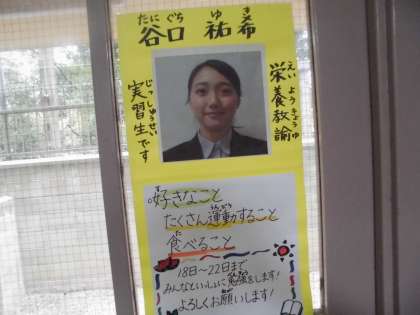 たに ぐち ゆき
谷口 祐希
じっしゅうせい
実習生です
えいようきょうゆ
栄養教諭
好きなこと
たくさん運動すること
食べること
18日〜22日まで
みんなといっしょに勉強をします!
よろしくお願いします!